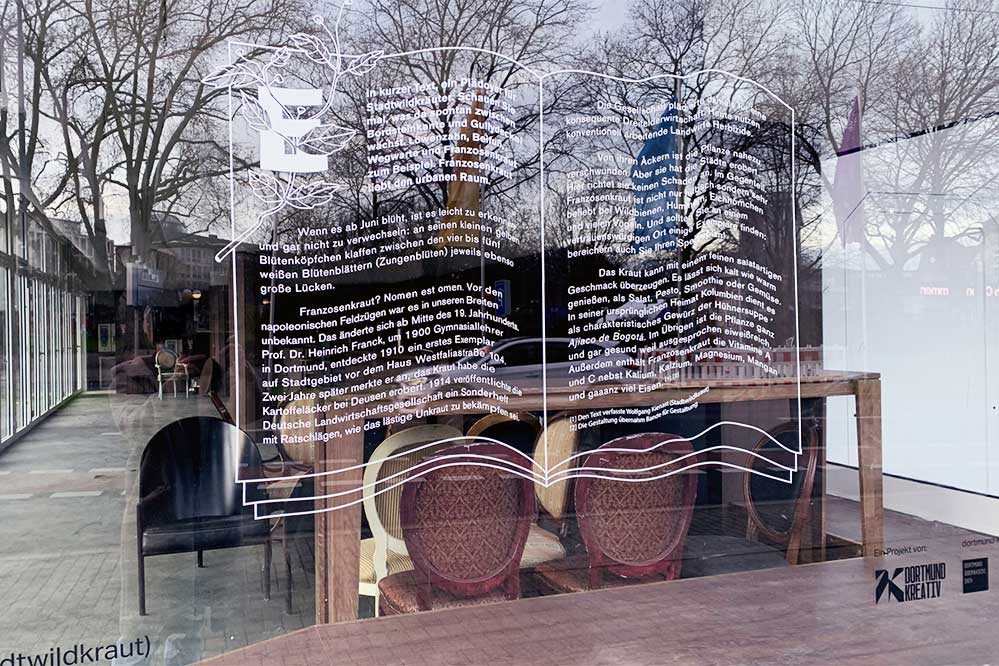 E
In kurzer Text, ein Plädoyer für
Stadtwildkräuter. Schauen Sie
mal, was da spontan zwischen
Bordsteinkante und Gullydeckel
wächst. Löwenzahn, Beifuß,
Wegwarte und Franzosenkraut
zum Beispiel. Franzosenkraut
liebt den urbanen Raum.
Wenn es ab Juni blüht, ist es leicht zu erkennen
und gar nicht zu verwechseln: an seinen kleinen gelben
Blütenköpfchen klaffen zwischen den vier bis fünf
weißen Blütenblättern (Zungenblüten) jeweils ebenso
große Lücken.
Franzosenkraut? Nomen est omen. Vor den
napoleonischen Feldzügen war es in unseren Breiten
unbekannt. Das änderte sich ab Mitte des 19. Jahrhunderts.
Prof. Dr. Heinrich Franck, um 1900 Gymnasiallehrer
in Dortmund, entdeckte 1910 ein erstes Exemplar
auf Stadtgebiet vor dem Haus Westfaliastraße 104.
Zwei Jahre später merkte er an, das Kraut habe die
Kartoffeläcker bei Deusen erobert. 1914 veröffentlichte die
Deutsche Landwirtschaftsgesellschaft ein Sonderheft
mit Ratschlägen, wie das lästige Unkraut zu bekämpfen sei.
Die Gesellschaft plädierte damals für eine
konsequente Dreifelderwirtschaft. Heute nutzen
konventionell arbeitende Landwirte Herbizide.
Von ihren Äckern ist die Pflanze nahezu
verschwunden. Aber sie hat die Städte erobert.
Hier richtet sie keinen Schaden an. Im Gegenteil:
Franzosenkraut ist nicht nur hübsch sondern sehr
beliebt bei Wildbienen, Hummeln, Eichhörnchen
und vielen Vögeln. Und sollten Sie an einem
vertrauenswürdigen Ort einige Exemplare finden:
bereichern auch Sie Ihren Speiseplan.
Das Kraut kann mit einem feinen salatartigen
Geschmack überzeugen. Es lässt sich kalt wie warm
genießen, als Salat, Pesto, Smoothie oder Gemüse.
In seiner ursprünglichen Heimat Kolumbien dient es
als charakteristisches Gewürz der Hühnersuppe
Ajiaco de Bogotá. Im Übrigen ist die Pflanze ganz
und gar gesund weil ausgesprochen eiweißreich.
Außerdem enthält Franzosenkraut die Vitamine A
und C nebst Kalium, Kalzium, Magnesium, Mangan
und gaaanz viel Eisen.
[1] Den Text verfasste Wolfgang Kienast
[2] Die Gestaltung übernahm Bande für Gestaltung
Ein Projekt von:
dortmund
DORTMUND
KREATIV
dtwildkraut)